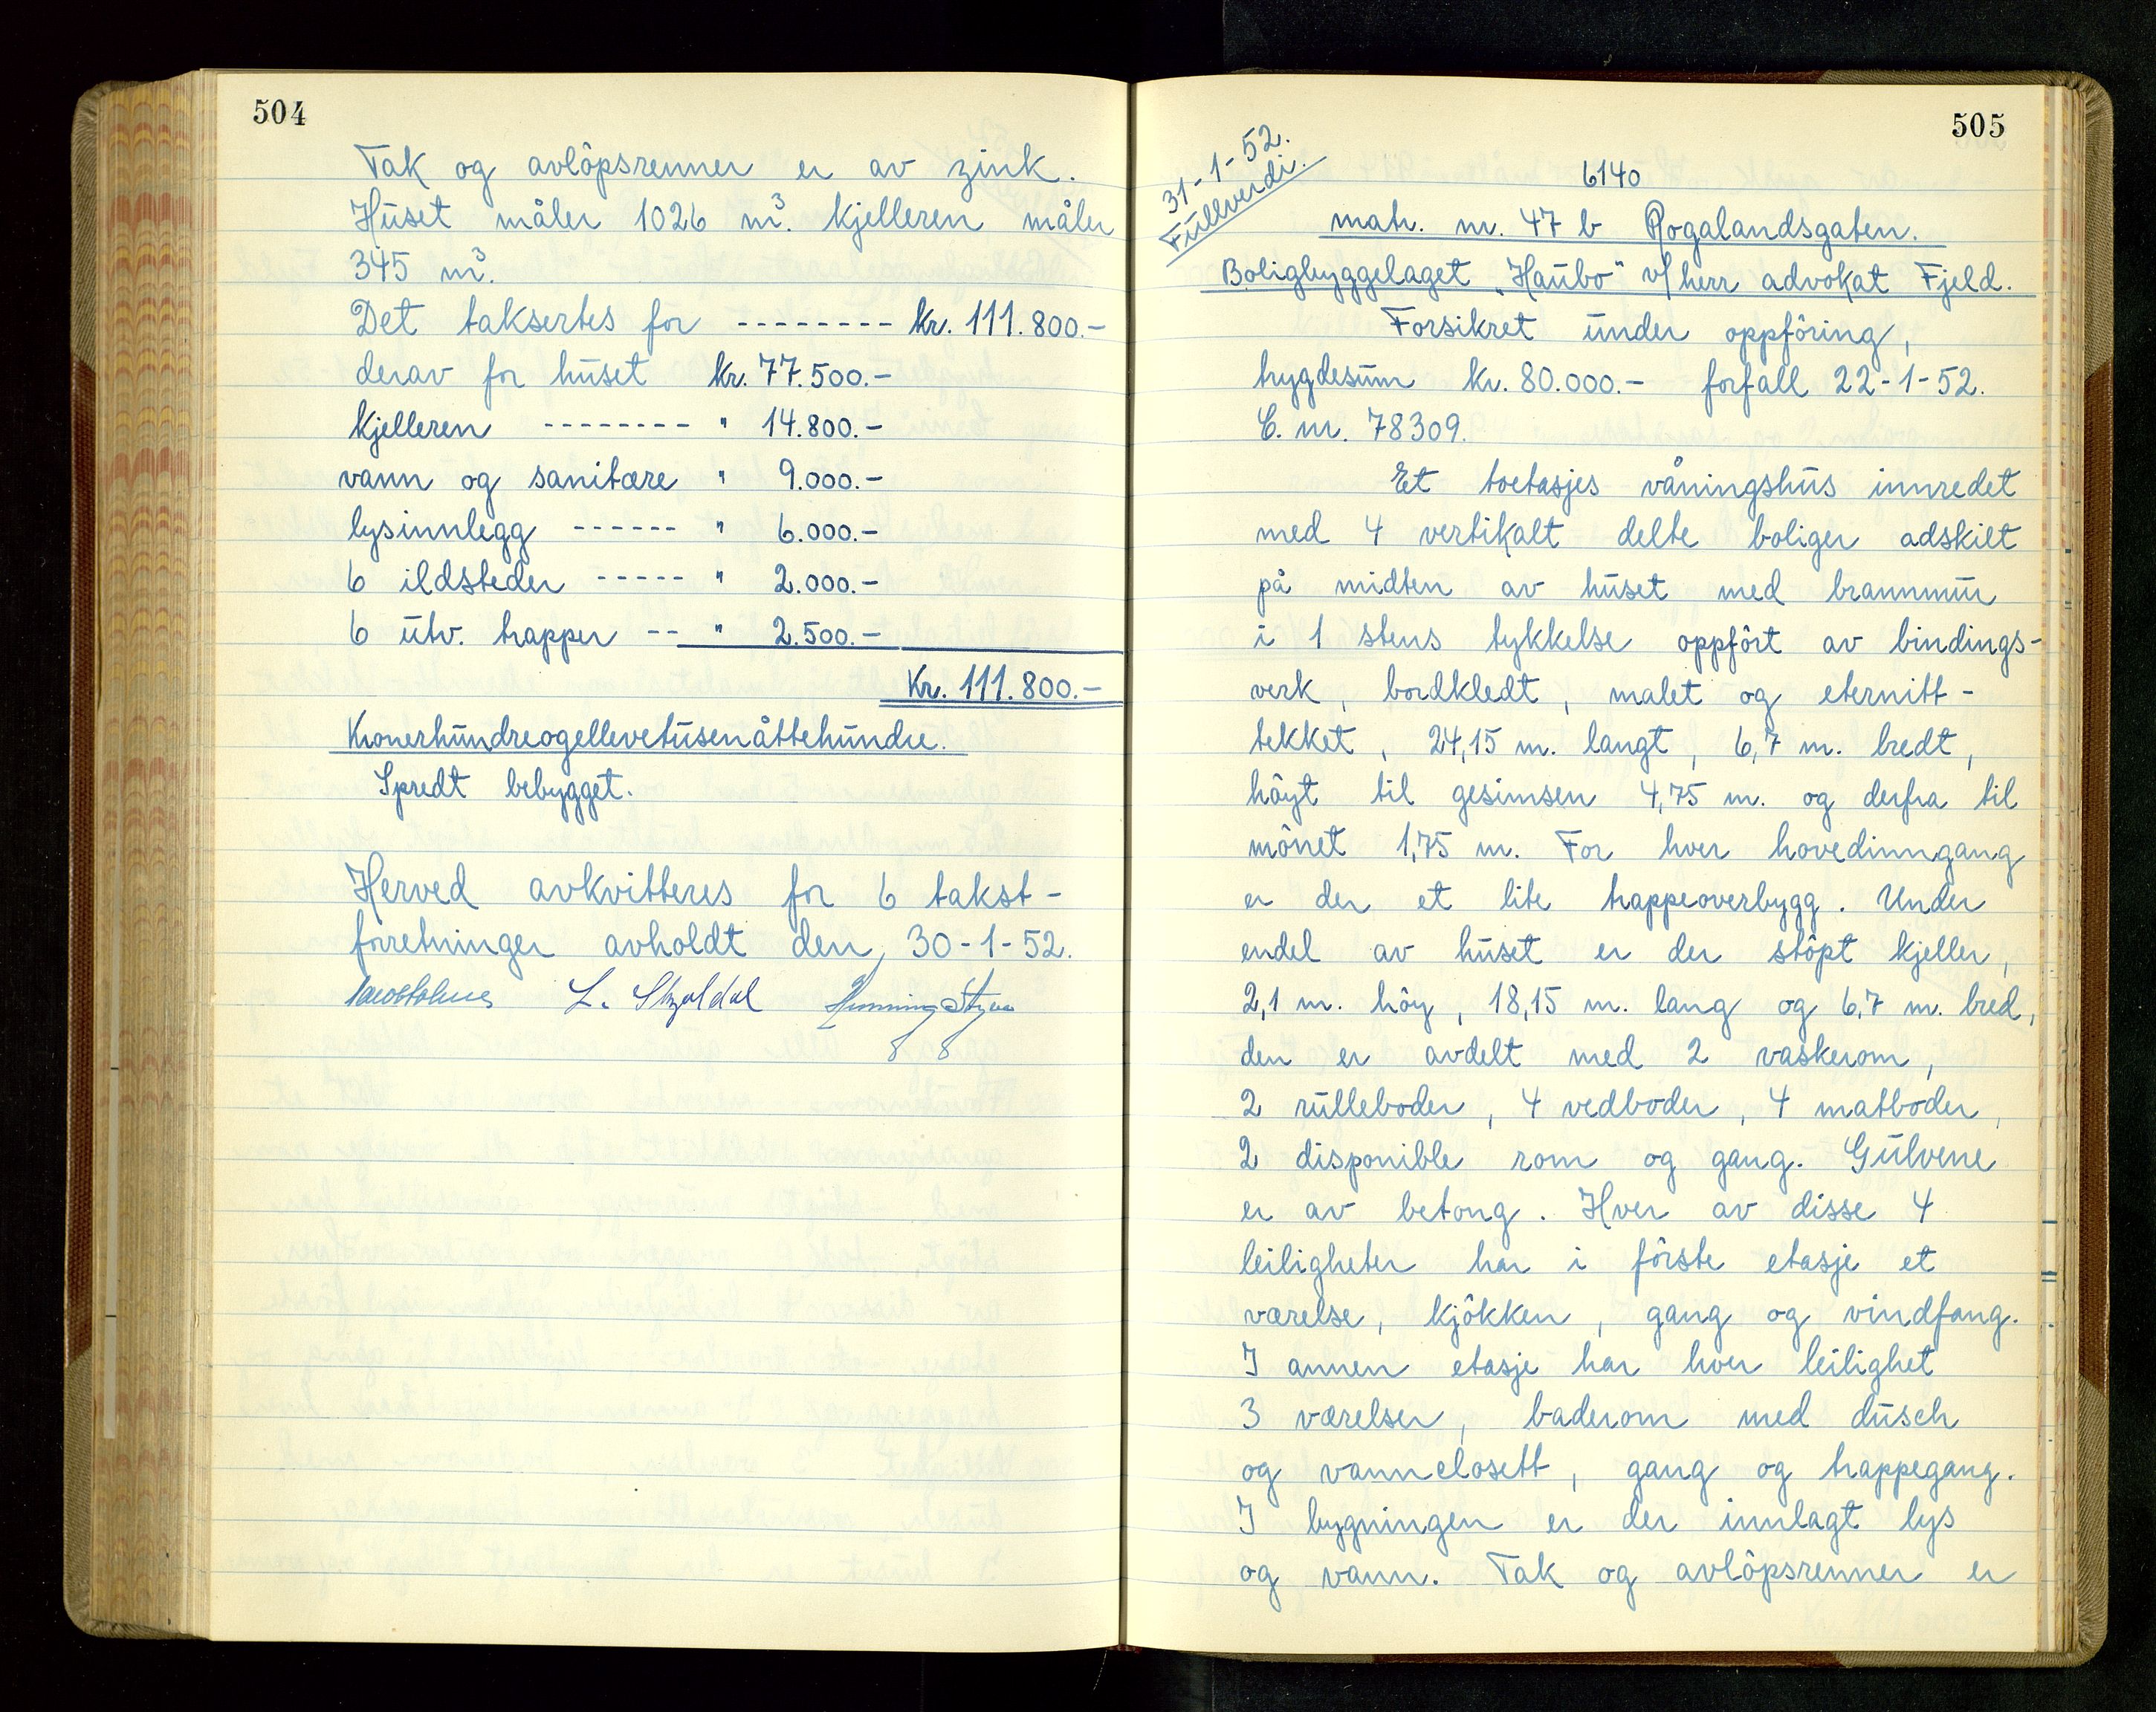 504
Tak og avlôpsrenner er av zink.
Huset måler 1026 m³. kjelleren måler
345 m³.
Det taksertes for -------- kr. 111.800.-
derav for huset kr. 77.500.-
kjelleren -------- " 14.800.-
vann og sanitære " 9.000.-
lysinnlegg ------ " 6.000.-
6 ildsteder ----- " 2.000.-
6 utv. trapper -- " 2.500.-
Kr. 111.800.-
Kronerhundreogellevetusenåttehundre.
Spredt bebygget.
Herved avkvitteres for 6 takst-
forretninger avholdt den, 30-1-52.
L. Skjoldal Henning
505
31-1-52.
Fullverdi.
6140
matr. nr. 47 b Rogalandsgaten.
Boligbyggelaget "Haubo" v/ herr advokat Fjeld.
Forsikret under oppfôring,
bygdesum kr. 80.000.- forfall 22-1-52.
C. nr. 78309.
Et toetasjes våningshus innredet
med 4 vertikalt delte boliger adskilt
på midten av huset med brannmur
i 1 stens tykkelse oppfôrt av bindings-
verk, bordkledt, malet og eternitt-
tekket, 24,15 m. langt, 6,7 m. bredt,
hôyt til gesimsen 4,75 m. og derfra til
mônet 1,75 m. For hver hovedinngang
er der et lite trappeoverbygg. Under
endel av huset er der stôpt kjeller,
2,1 m. hôy, 18,15 m. lang og 6,7 m. bred,
den er avdelt med 2 vaskerom,
2 rulleboder, 4 vedboder, 4 matboder,
2 disponible rom og gang. Gulvene
er av betong. Hver av disse 4
leiligheter har i fôrste etasje et
værelse, kjôkken, gang og vindfang.
I annen etasje har hver leilighet
3 værelser, baderom med dusch
og vannclosett, gang og trappegang.
I bygningen er der innlagt lys
og vann. Tak og avlôpsrenner er